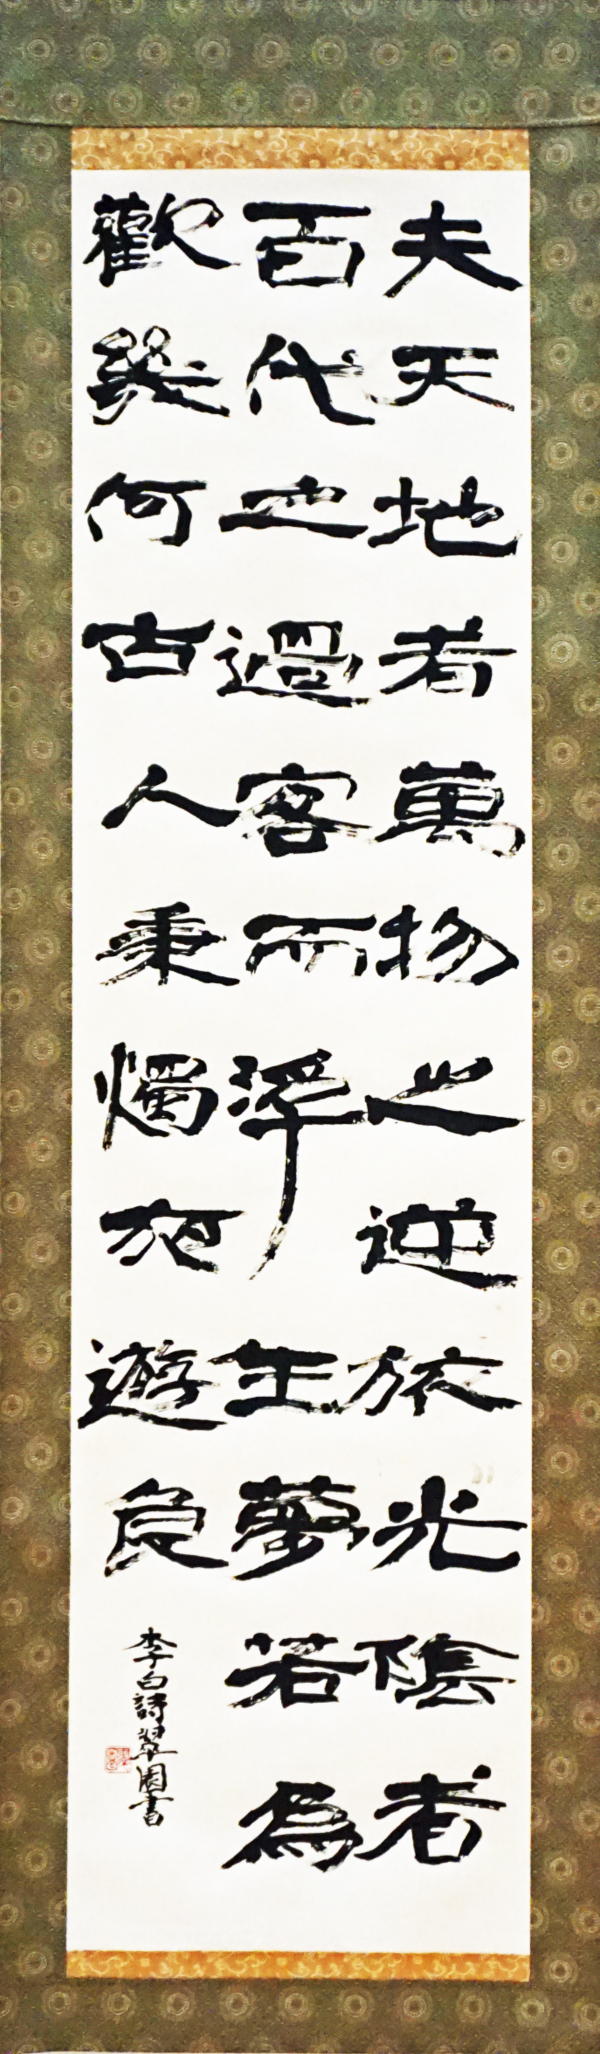 夫天地者萬物之逆旅光陰者
百代之過客而浮生夢若為
歡幾何古人秉燭夜遊良
李白詩翠園書